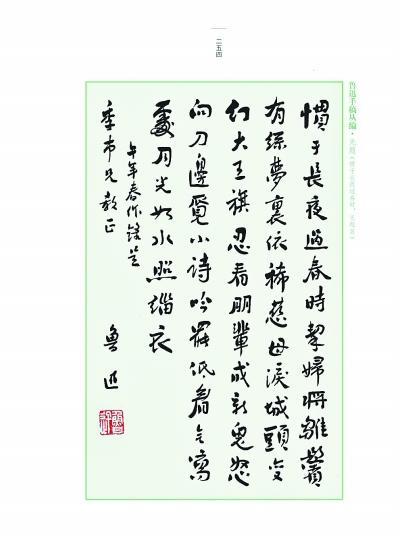 二五四
鲁迅手稿丛编·无题
慣于長夜過春時挈婦將雛鬢
有絲夢裏依稀慈母淚城頭变
幻大王旗忍看朋輩成新鬼怒
向刀邊覓小詩吟罷低眉无寫
處月光如水照緇衣
午年春作錄呈
季市兄教正
魯迅
魯迅